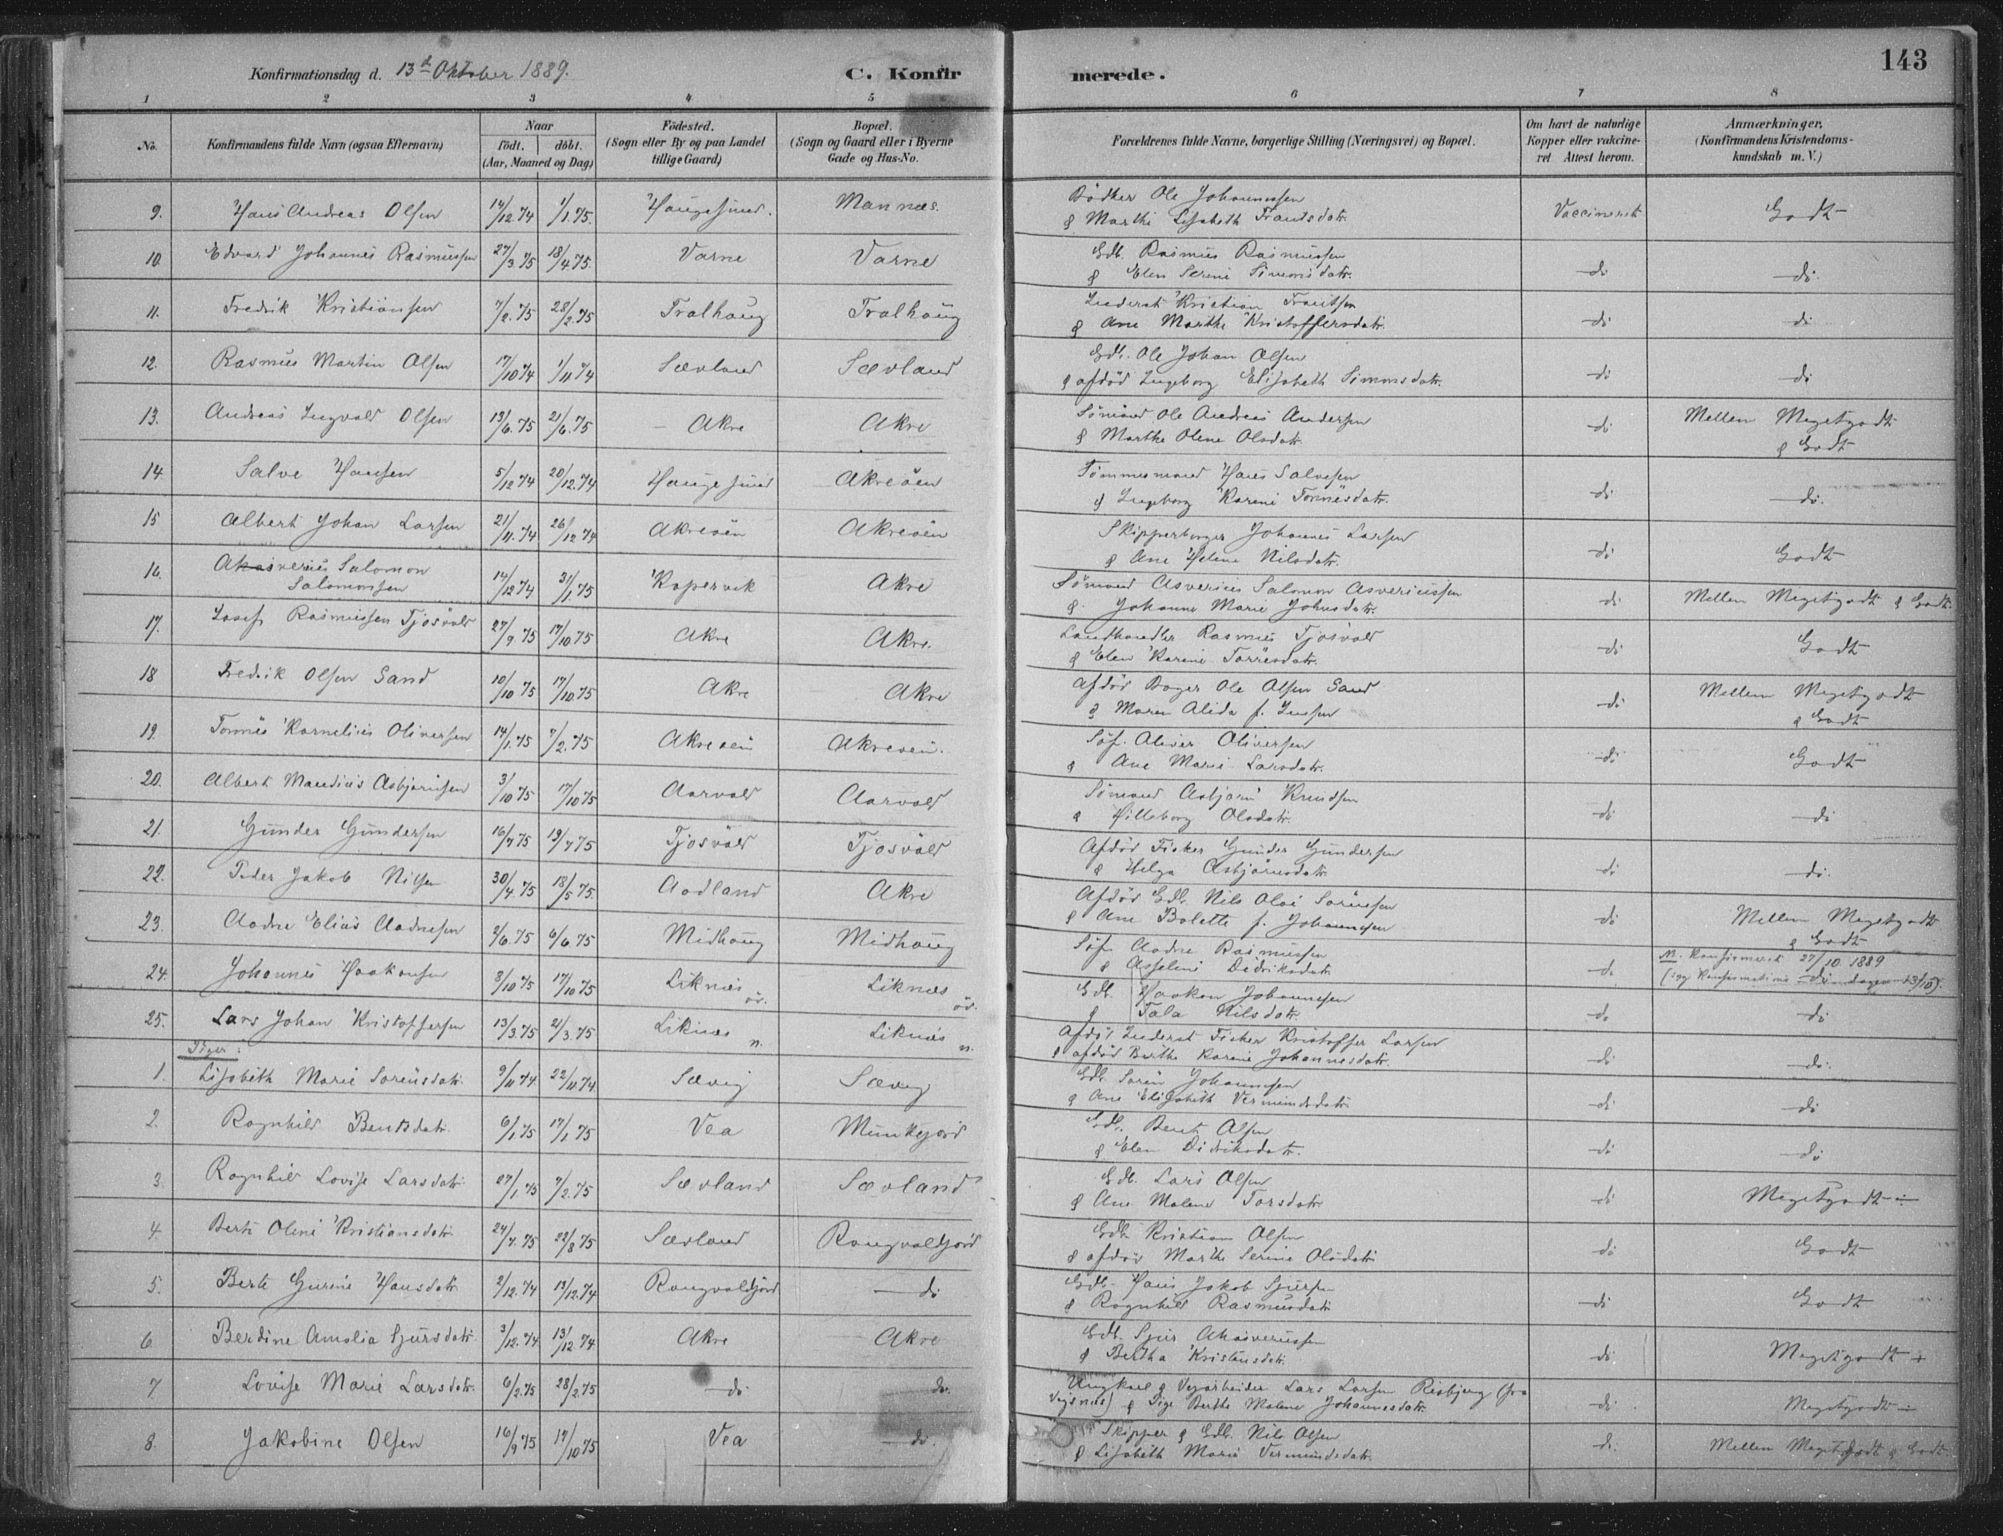 143
Konfirmationsdag d. 13d Oktober 1889.
C. Konfirmerede.
1 2 3 4 5 6 7 8
No. Konfirmandens fulde Navn (ogsaa Efternavn) Naar født. døbt. (Aar, Maaned og Dag) Fødested. (Sogn eller By og paa Landet tillige Gaard) Bopæl. (Sogn og Gaard eller i Byerne Gade og Hus-No. Forældrenes fulde Navne, borgerlige Stilling (Næringsvei) og Bopæl. Om havt de naturlige Kopper eller vakcineret. Attest herom. Anmærkninger. (Konfirmandens Kristendomskundskab m. V.)
9. Hans Andreas Olsen 14/12.74 1/1.75. Haugesund. Mannæs. Bødker Ole Johannessen
& Marthe Lisabeth Frantsdatr. Vaccineret Godt
10. Edvard Johannes Rasmussen 27/3.75 18/4.75. Varne Varne Gdb. Rasmus Rasmussen
& Elen Serine Simonsdatr. do do.
11. Fredrik Kristiansen 7/2.75 28/2.75 Tralhaug Tralhaug Inderst Kristian Frantsen
& Ane Marthe Kristoffersdatr. do do
12. Rasmus Martin Olsen 17/10.74 1/11.74 Sævland Sævland Gdb. Ole Johan Olsen
& afdød Ingeborg Elisabeth Simonsdatr. do do
13. Andreas Ingvald Olsen 13/6.75 21/6.75 Akre Akre Sømand Ole Andreas Andersen
& Marthe Olene Olsdatr. do Mellem Megetgodt
& Godt
14. Salve Hansen 5/12.74 20/12.74 Haugesund Akreøen Tømmermand Hans Salvesen
& Ingeborg Karine Tønnesdatr. do do.
15 Albert Johan Larsen 21/11.74 26/12.74 Akreøen Akreøen Skipperborger Johannes Larsen
& Ane Helene Nilsdatr. do Godt
16. Ahasverius Salomon
Salomonsen 14/12.74 31/1.75 Kopervik Akre Sømand Asverius Salomon Asveriussen
& Johanne Marie Johnsdatr. do Mellem Megetgodt & Godt
17. Josef Rasmussen Tjøsvold 27/9.75 17/10.75 Akre Akre. Landhandler Rasmus Tjøsvold
& Elen Karine Torresdatr. do Godt
18 Fredrik Olsen Sand 10/10.75 17/10.75 Akre Akre Afdød Bager Ole Olsen Sand
& Maren Alida f. Jensen do Mellem Megetgodt
& Godt
19. Tønnes Kornelius Oliversen 14/1.75 7/2.75 Akreøen Akreøen. Søf. Oliver Oliversen
& Ane Marie Larsdatr. do Godt
20. Albert Mandius Asbjørnsen 3/10.75 17/10.75 Aarvold Aarvold Sømand Asbjørn Knudsen
& Hilleborg Olsdatr. do do
21. Gunder Gundersen 16/7.75 19/7.75 Tjøsvold Tjøsvold Afdød Fisker Gunder Gundersen
& Helga Asbjørnsdatr. do do.
22. Peder Jakob Nilsen 30/4.75 18/5.75. Aadland Akre Afdød Gdb. Nils Oloi Sørensen
& Ane Bolette f. Johannesen do Mellem Megetgodt
& Godt
23. Aadne Elias Aadnesen 2/6.75 6/6.75 Midhaug Midhaug Søf. Aadne Rasmussen
& Asseline Didriksdatr. do N. Konfirmeret 27/10. 1889
do
24. Johannes Haakonsen 3/10.75 17/10.75 Liknæs øv. Liknæs øv. Gdb. Haakon Johannesen
& Tala Nilsdatr. do do
25. Lars Johan Kristoffersen 13/3.75 21/3.75 Liknæs n. Liknæs n. Afdød Inderst Fisker Kristoffer Larsen
& afdød Berthe Karine Johannesdatr. do do.
Piger:
1. Lisabeth Marie Sørensdatr. 9/11.74 22/11.74 Sævig Sævig Gdb. Søren Johannesen
& Ane Elisabeth Vermundsdatr. do do
2. Ragnhild Bentsdatr. 6/1.75 17/1.75 Vea Munkejord Gdb. Bent Olsen
& Elen Didriksdatr. do do
3. Ragnhild Lovise Larsdatr. 27/1.75 7/2.75 Sævland Sævland Gdb. Lars Olsen
& Ane Malene Torsdatr. do Megetgodt ÷
4 Berte Oline Kristiansdatr. 24/7.75 22/8.75 Sævland Rangvaldjord Gdb. Kristian Olsen
& afdød Marthe Serine Olsdatr. do Godt
5. Berte Gurine Hansdatr. 2/12.74 13/12.74 Rangvaldjord do Gdb. Hans Jakob Sjursen
& Ragnhild Rasmusdatr. do Godt
6. Berdine Amalia Sjursdatr. 3/12.74 13/12.74 Akre Akre Gdb. Sjur Ahasverussen
& Bertha Kristensdatr. do Megetgodt +
7. Lovise Marie Larsdatr. 6/2.75 28/2.75 do do. Ungkarl & Vejarbeider Lars Larsen Risbjerg (fra
Vejsnæs) & Pige Berthe Malene Johannesdatr. do Megetgodt ÷
8. Jakobine Olsen 16/9.75 17/10.75 Vea do. Skipper & Gdb. Nils Olsen
& Lisabeth Marie Vermundsdatr. do Mellem Megetgodt & Godt